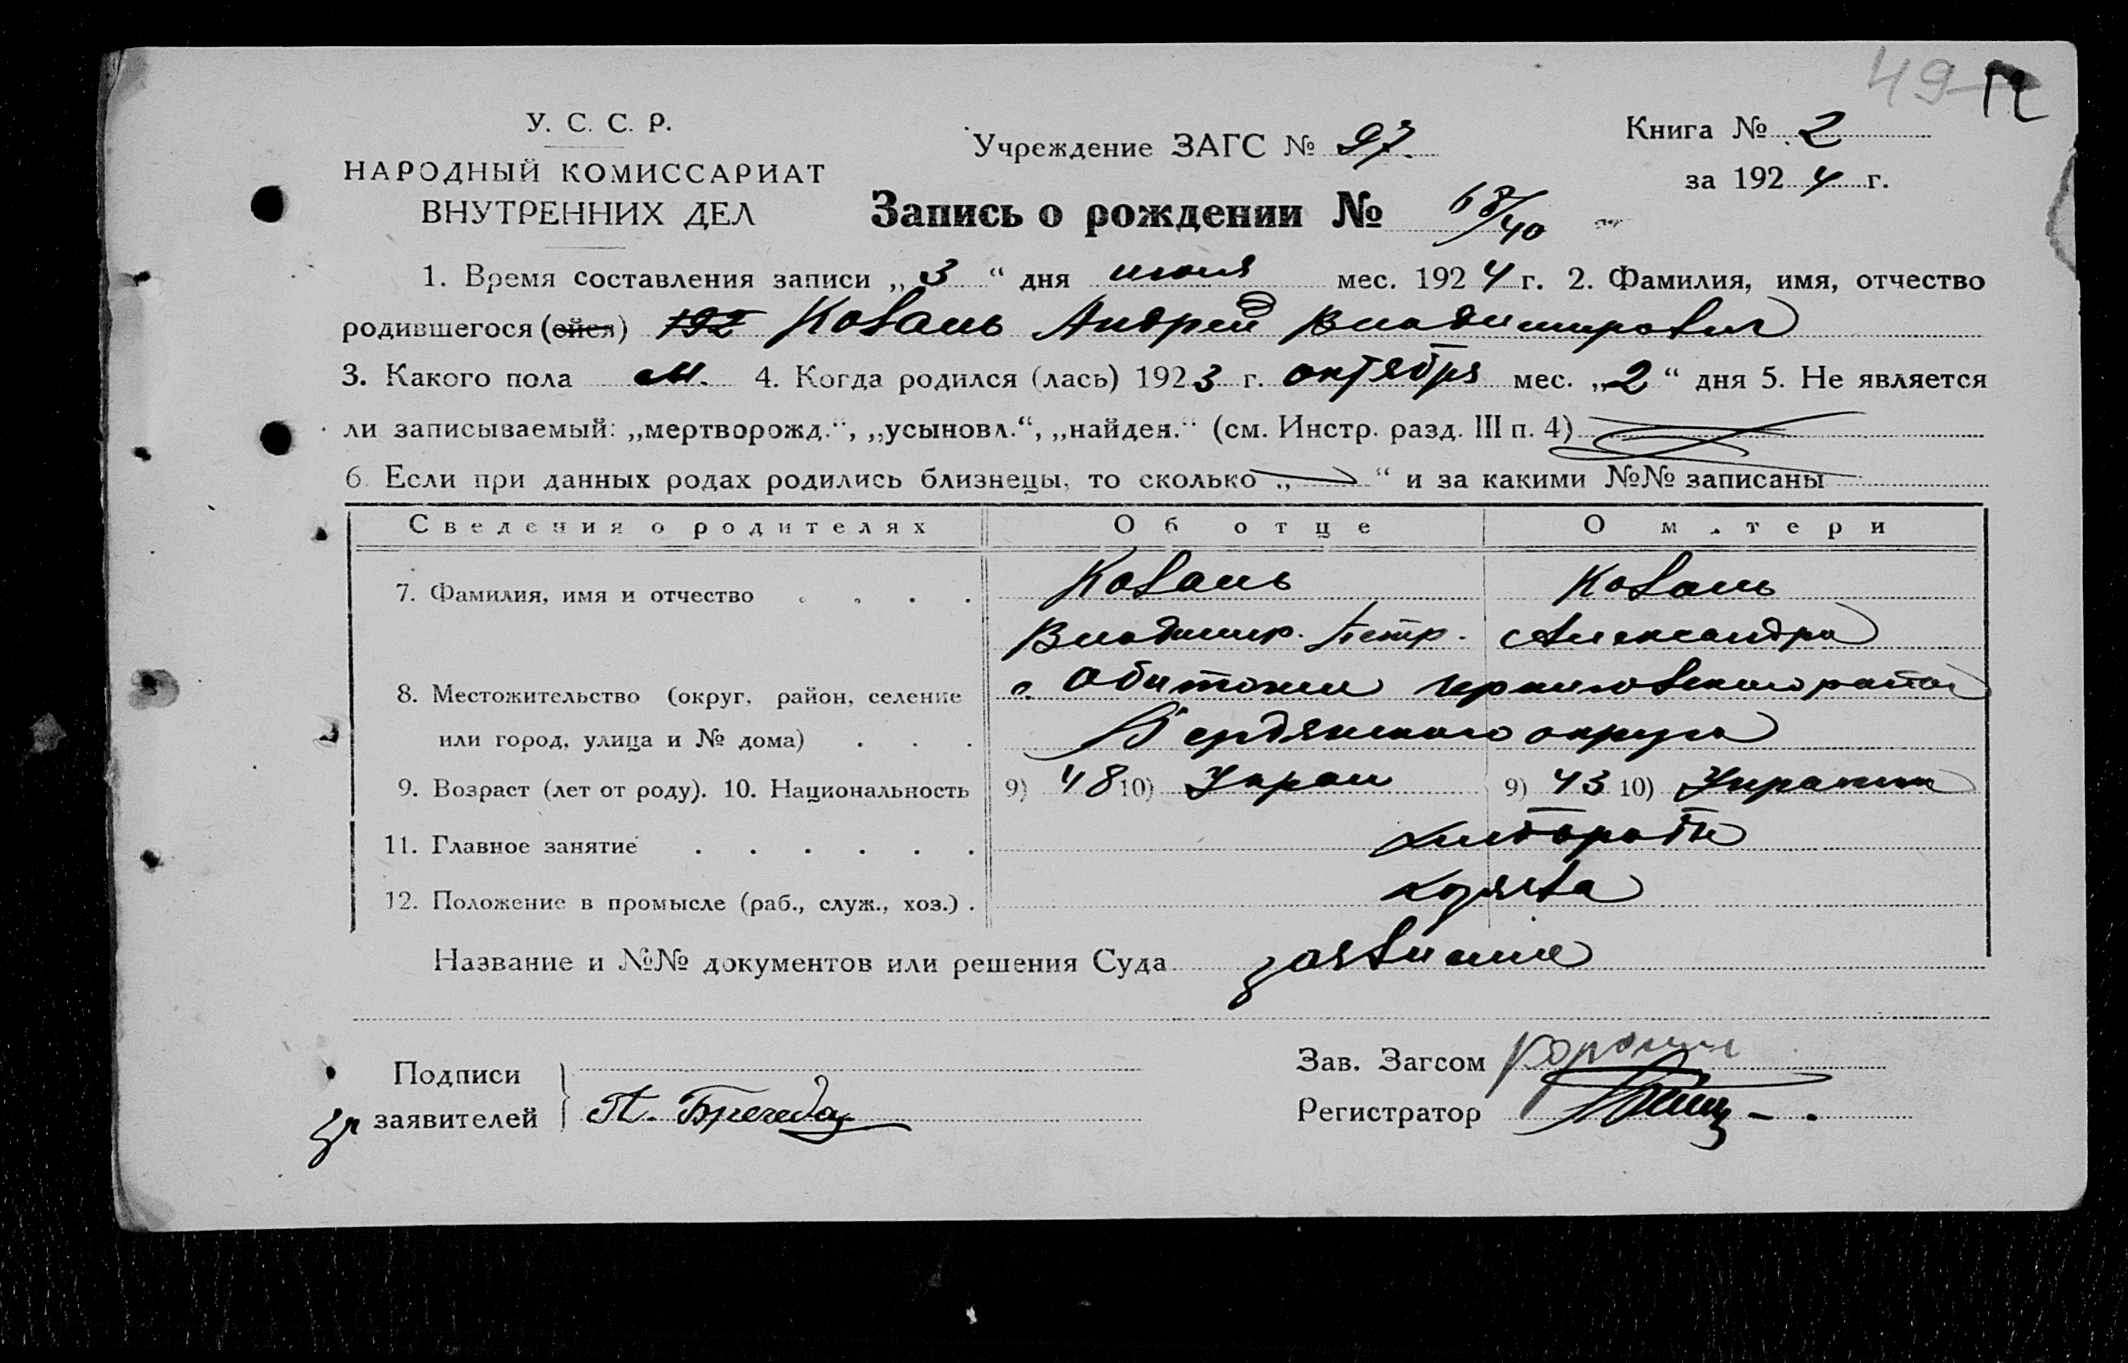 49 12
У. С. С. Р.
НАРОДНЫЙ КОМИССАРИАТ
ВНУТРЕННИХ ДЕЛ
Учреждение ЗАГС № 97.
Книга № 2
за 1924 г.
Запись о рождении № 68/40
1. Время составления записи „3“ дня июня мес. 1924 г. 2. Фамилия, имя, отчество
родившегося (ойся) 192 Коваль Андрей Владимирович
3. Какого пола М. 4. Когда родился (лась) 1923 г. октября мес. „2“ дня 5. Не является
ли записываемый: „мертворожд.“, „усыновл.“, „найден.“ (см. Инстр. разд. III п. 4)
6. Если при данных родах родились близнецы, то сколько „—“ и за какими №№ записаны —
Сведения о родителях Об отце О матери
7. Фамилия, имя и отчество . . . . Коваль Коваль
Владимир. Петр. Александра
8. Местожительство (округ, район, селение с. Обиточни черниговского района
или город, улица и № дома) . . . Бердянского округа
9. Возраст (лет от роду). 10. Национальность 9) 48 10) Украи 9) 43 10)
11. Главное занятие . . . . . . хлебороб
12. Положение в промысле (раб., служ., хоз.) . хозяева
Название и №№ документов или решения Суда заявление
Подписи
заявителей
Зав. Загсом
Регистратор